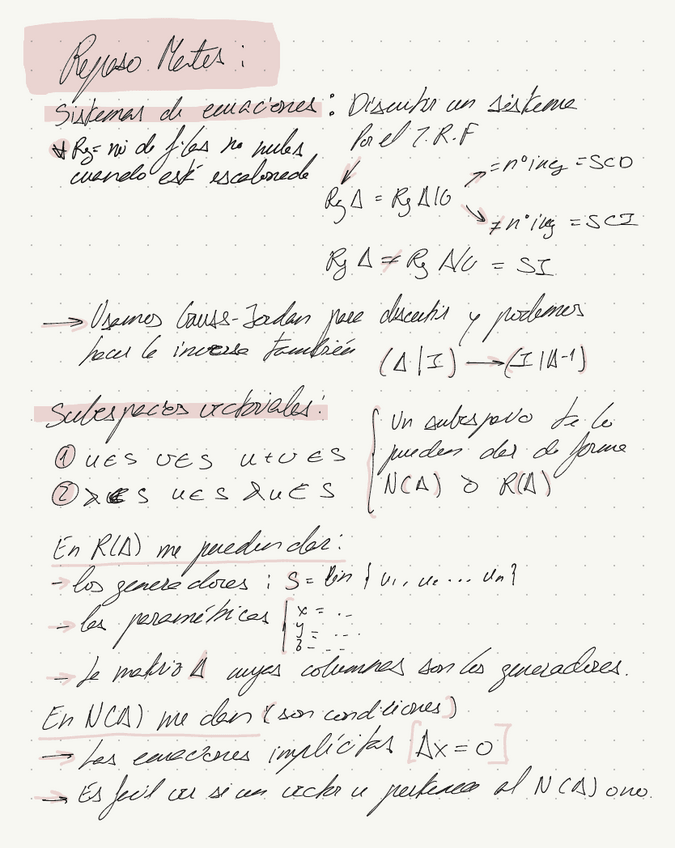 Repaso Mates:
Sistemas de ecuaciones: Discutir un sistema
Por el T.R.F
* Rg = nº de filas no nulas
cuando está escalonada
Rg A = Rg A|b
= nº incg = SCD
≠ nº incg = SCI
Rg A ≠ Rg A/b = SI
→ Usamos Gauss-Jordan para discutir y podemos
hacer la inversa también (A|I) → (I|A-1)
Subespacios vectoriales:
① u∈S v∈S u+v∈S
② λ∈S u∈S λu∈S
Un subespacio te lo
pueden dar de forma
N(A) o R(A)
En R(A) me pueden dar:
- los generadores: S = Lin {u1, u2 ... un}
- las paramétricas { x = ...
y = ...
z = ...
- la matriz A cuyas columnas son los generadores.
En N(A) me dan (son condiciones)
→ Las ecuaciones implícitas [Ax = 0]
→ Es fácil ver si un vector u pertenece al N(A) o no.